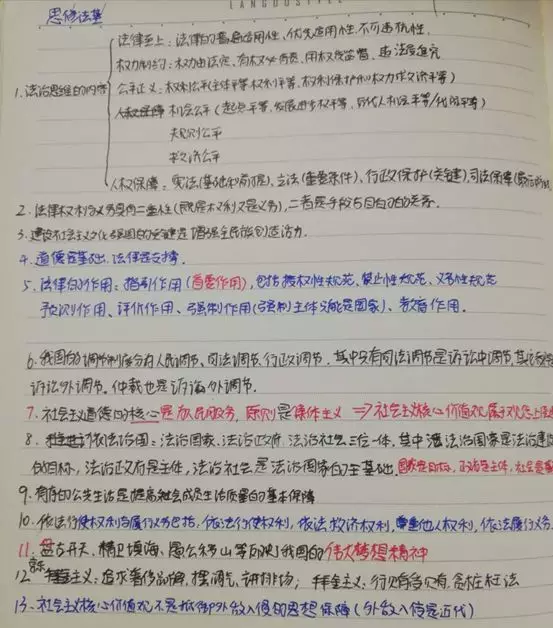 思修法基
法律至上：法律的普遍适用性、优先适用性、不可违抗性.
权力制约：权力由法定、有权必有责、用权受监督、违法受追究
1.法治思维的内容 公平正义：权利公平(主体平等权利平等、权利保护和权力救济平等)
机会公平（起点平等、发展进步权平等、后代人机会平等/代际平等）
规则公平
救济公平
人权保障：宪法(基础和前提)、立法(重要条件)、行政保护(关键)、司法保障
2.法律权利与义务具有二重性(既是权利又是义务)，二者是手段与目的的关系.
3.建设社会主义文化强国的关键是增强全民族创造活力.
4.道德是基础，法律是支撑.
5.法律的作用：指引作用（首要作用），包括授权性规范、禁止性规范、义务性规范
预测作用、评价作用、强制作用(强制主体只能是国家)、教育作用.
6.我国的调节制度分为人民调节、司法调节、行政调节.其中只有司法调节是诉讼中调节，其
诉讼外调节.仲裁也是诉讼外调节.
7.社会主义道德的核心是为人民服务，原则是集体主义 ⇒社会主义核心价值观属于
8.依法治国：法治国家、法治政府、法治社会三位一体，其中法治国家是法治建设
的目标，法治政府是主体，法治社会是法治国家的基础.
9.有序的公共生活是提高社会成员生活质量的基本保障
10.依法行使权利与履行义务包括：依法行使权利、依法救济权利、尊重他人权利、依法履行义务.
11.盘古开天、精卫填海、愚公移山等体现我国的伟大梦想精神
12.主义：追求奢侈品牌，摆阔气，讲排场；拜金主义：行贿受贿、贪赃枉法
13.社会主义核心价值观不是抵御外敌入侵的思想保障(外敌入侵是近代)